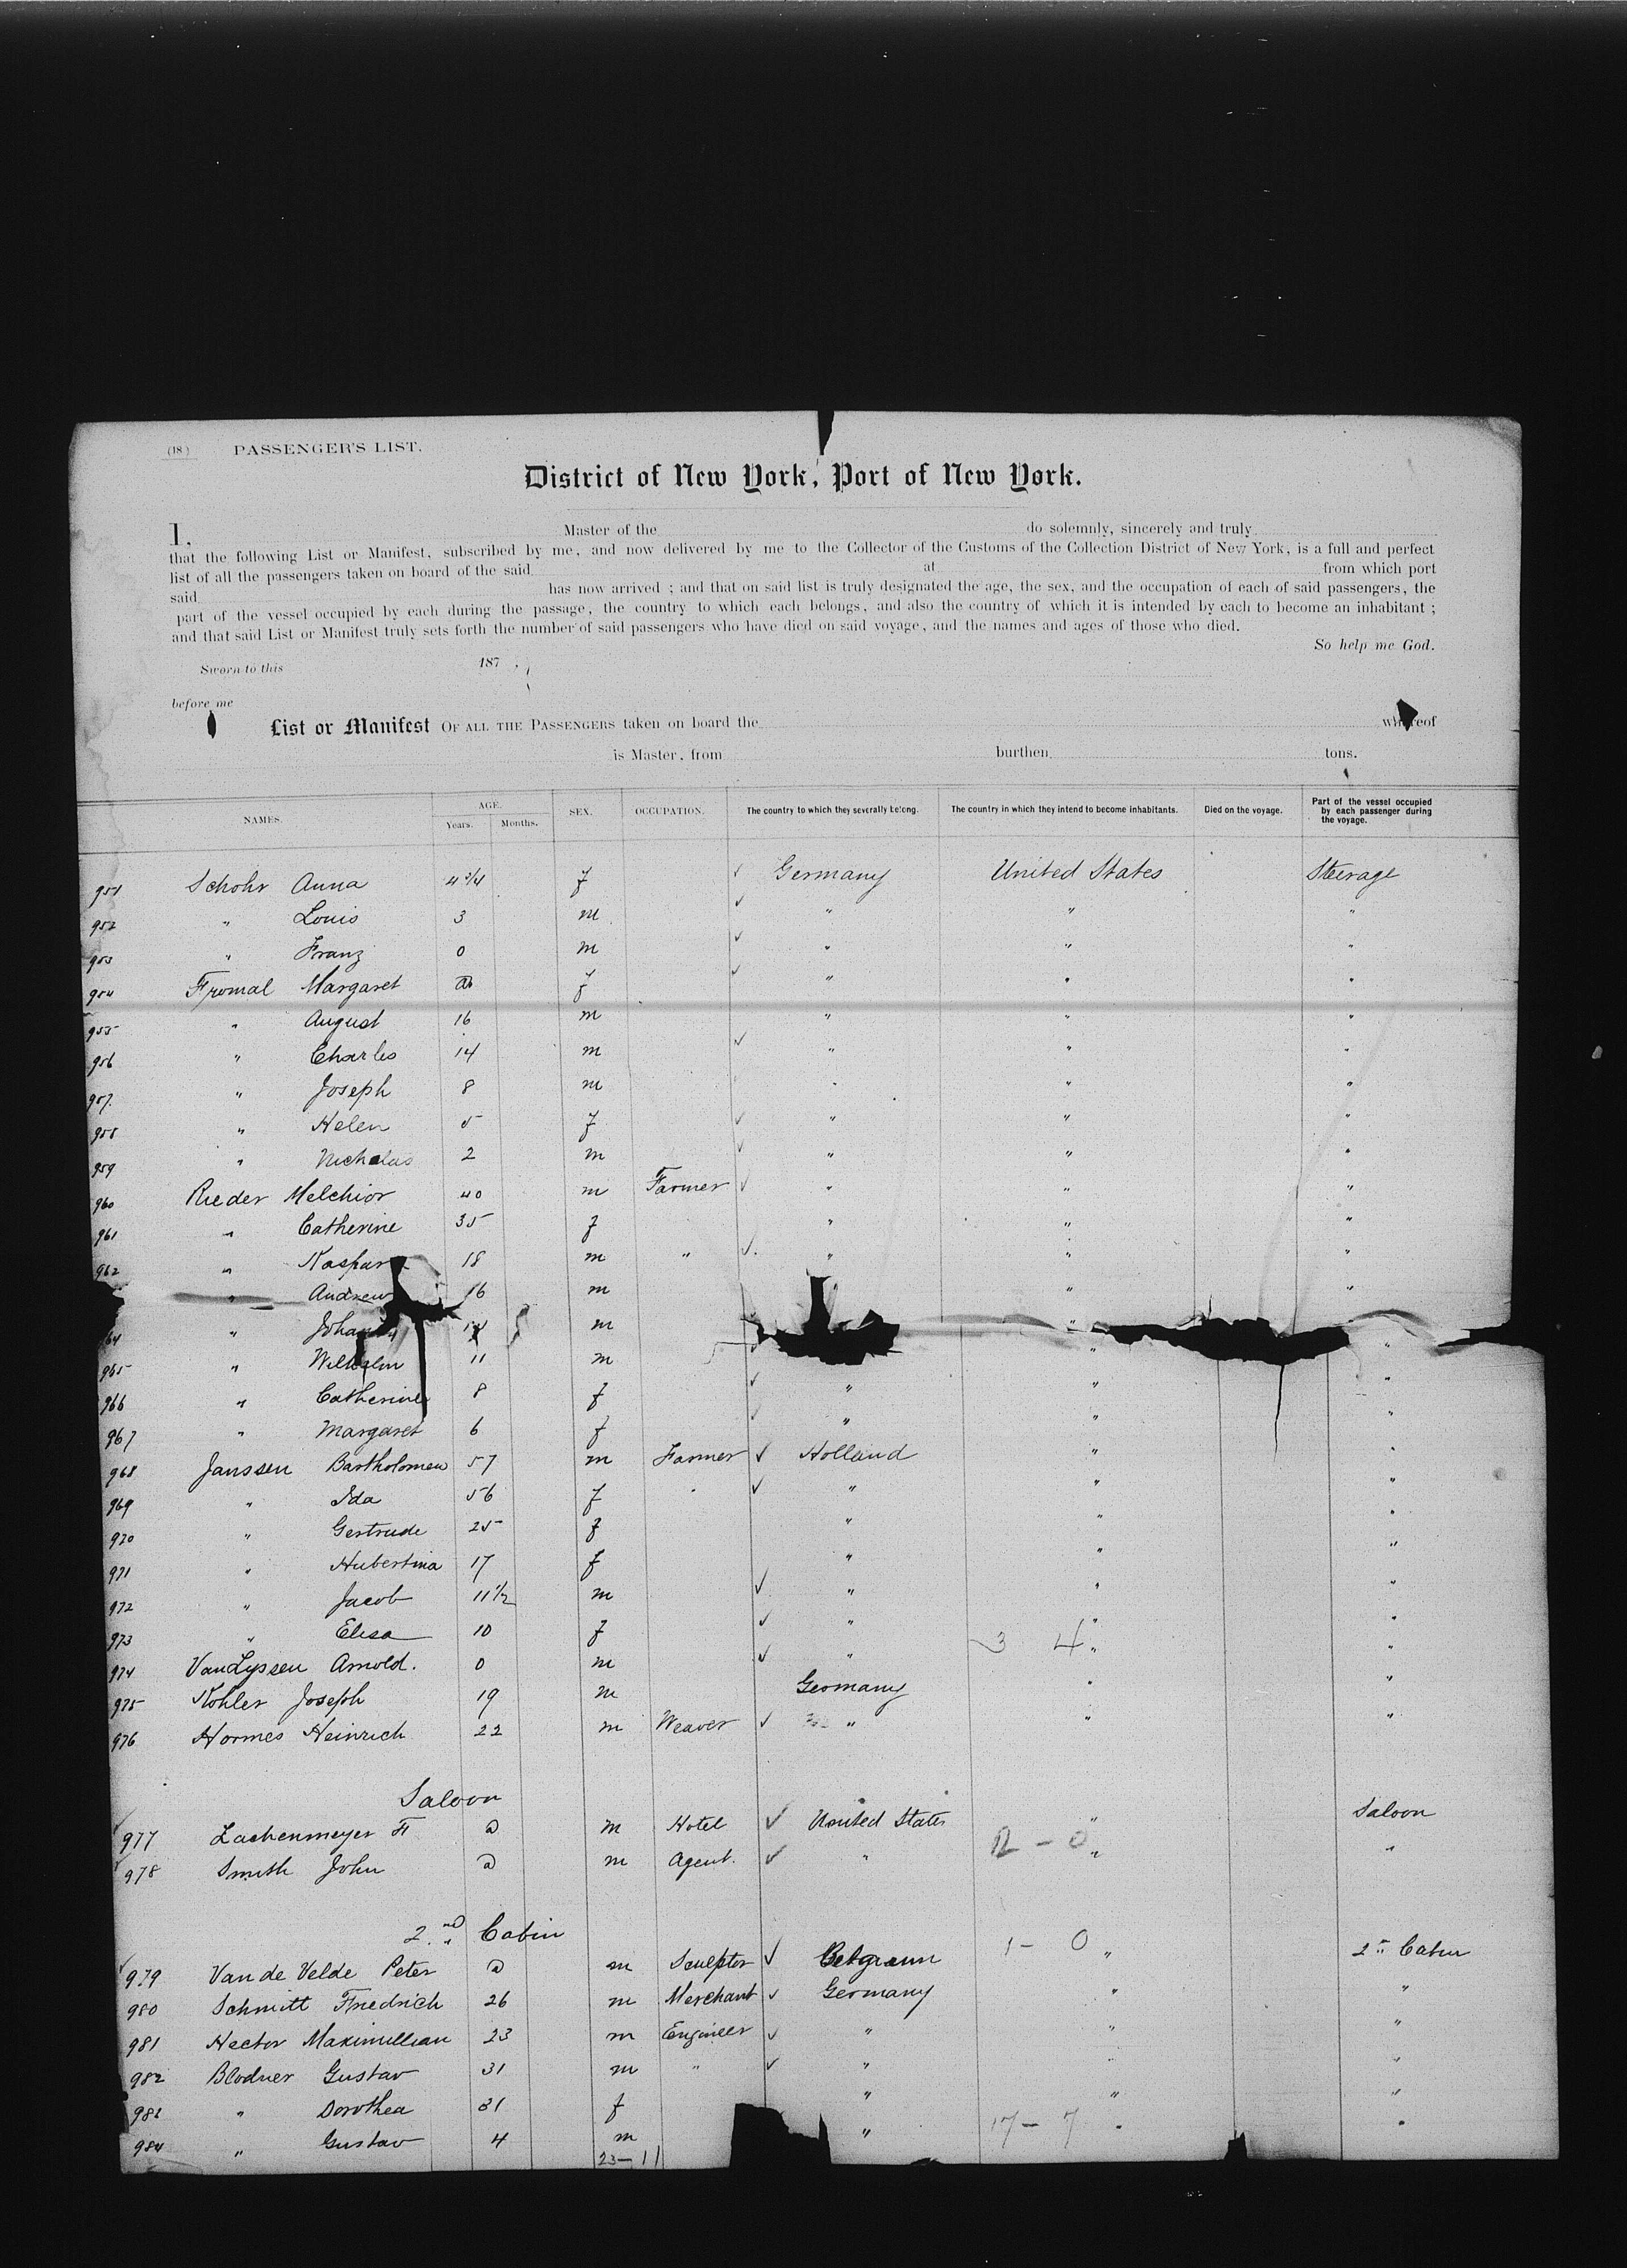 (18) PASSENGER'S LIST.
District of New York, Port of New York.
I, Master of the do solemnly, sincerely and truly
that the following List or Manifest, subscribed by me, and now delivered by me to the Collector of the Customs of the Collection District of New York, is a full and perfect
list of all the passengers taken on board of the said at from which port
said has now arrived ; and that on said list is truly designated the age, the sex, and the occupation of each of said passengers, the
part of the vessel occupied by each during the passage, the country to which each belongs, and also the country of which it is intended by each to become an inhabitant ;
and that said List or Manifest truly sets forth the number of said passengers who have died on said voyage, and the names and ages of those who died.
So help me God.
Sworn to this 187 ,
before me
List or Manifest OF ALL THE PASSENGERS taken on board the whereof
is Master, from burthen tons.
NAMES. AGE. Years. Months. SEX. OCCUPATION. The country to which they severally belong. The country in which they intend to become inhabitants. Died on the voyage. Part of the vessel occupied by each passenger during the voyage.
951 Schohr Anna 4 3/4 f ✓ Germany United States Steerage
952 " Louis 3 m ✓ " " "
953 " Franz 0 m ✓ " " "
954 Fromal Margaret f ✓ " " "
955 " August 16 m " " "
956 " Charles 14 m ✓ " " "
957 " Joseph 8 m " " "
958 " Helen 5 f ✓ " " "
959 " Nicholas 2 m ✓ " " "
960 Rieder Melchior 40 m Farmer ✓ " " "
961 " Catherine 35 f " " "
962 " Kaspar 18 m " ✓ " " "
" Andrew 16 m " "
64 " Johan m "
965 " Wilhelm 11 m " "
966 " Catherine 8 f ✓ " " "
967 " Margaret 6 f ✓ " " "
968 Janssen Bartholomew 57 m Farmer ✓ Holland " "
969 " Ida 56 f ✓ " " "
970 " Gertrude 25 f " " "
971 " Hubertina 17 f " " "
972 " Jacob 11 1/2 m ✓ " " "
973 " Elisa 10 f ✓ " 3 4 " "
974 VanLyssen Arnold. 0 m ✓ " " "
975 Kohler Joseph 19 m Germany " "
976 Hormes Heinrich 22 m Weaver ✓ " " "
Saloon
977 Lachenmeyer F a m Hotel ✓ United States " Saloon
978 Smith John a m Agent. ✓ " 2 - 0 " "
2nd Cabin
979 Van de Velde Peter a m Sculptor ✓ Belgium 1 - 0 " 2" Cabin
980 Schmitt Friedrich 26 m Merchant ✓ Germany " "
981 Hector Maximillian 23 m Engineer ✓ " " "
982 Blodner Gustav 31 m " ✓ " " "
983 " Dorothea 31 f " " "
984 " Gustav 4 m " 17 - 7 " "
23 - 11